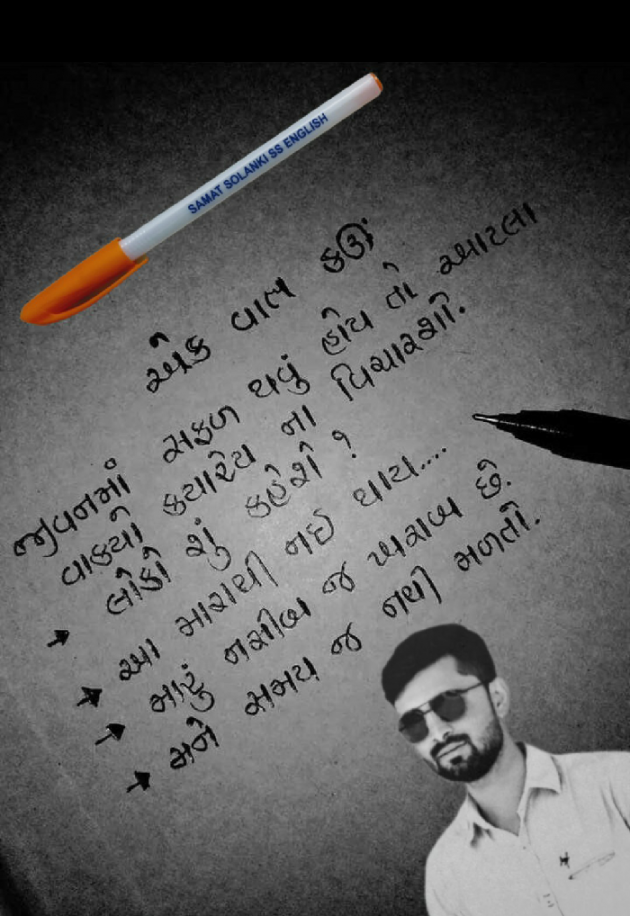 SAMAT SOLANKI SS ENGLISH
એક વાત કઉં
જીવનમાં સફળ થવું હોય તો આટલા
વાકયો કયારેય ના વિચારશો.
→ લોકો શું કહેશે ?
→ આ મારાથી નઈ થાય....
→ મારું નસીબ જ ખરાબ છે.
→ મને સમય જ નથી મળતો.